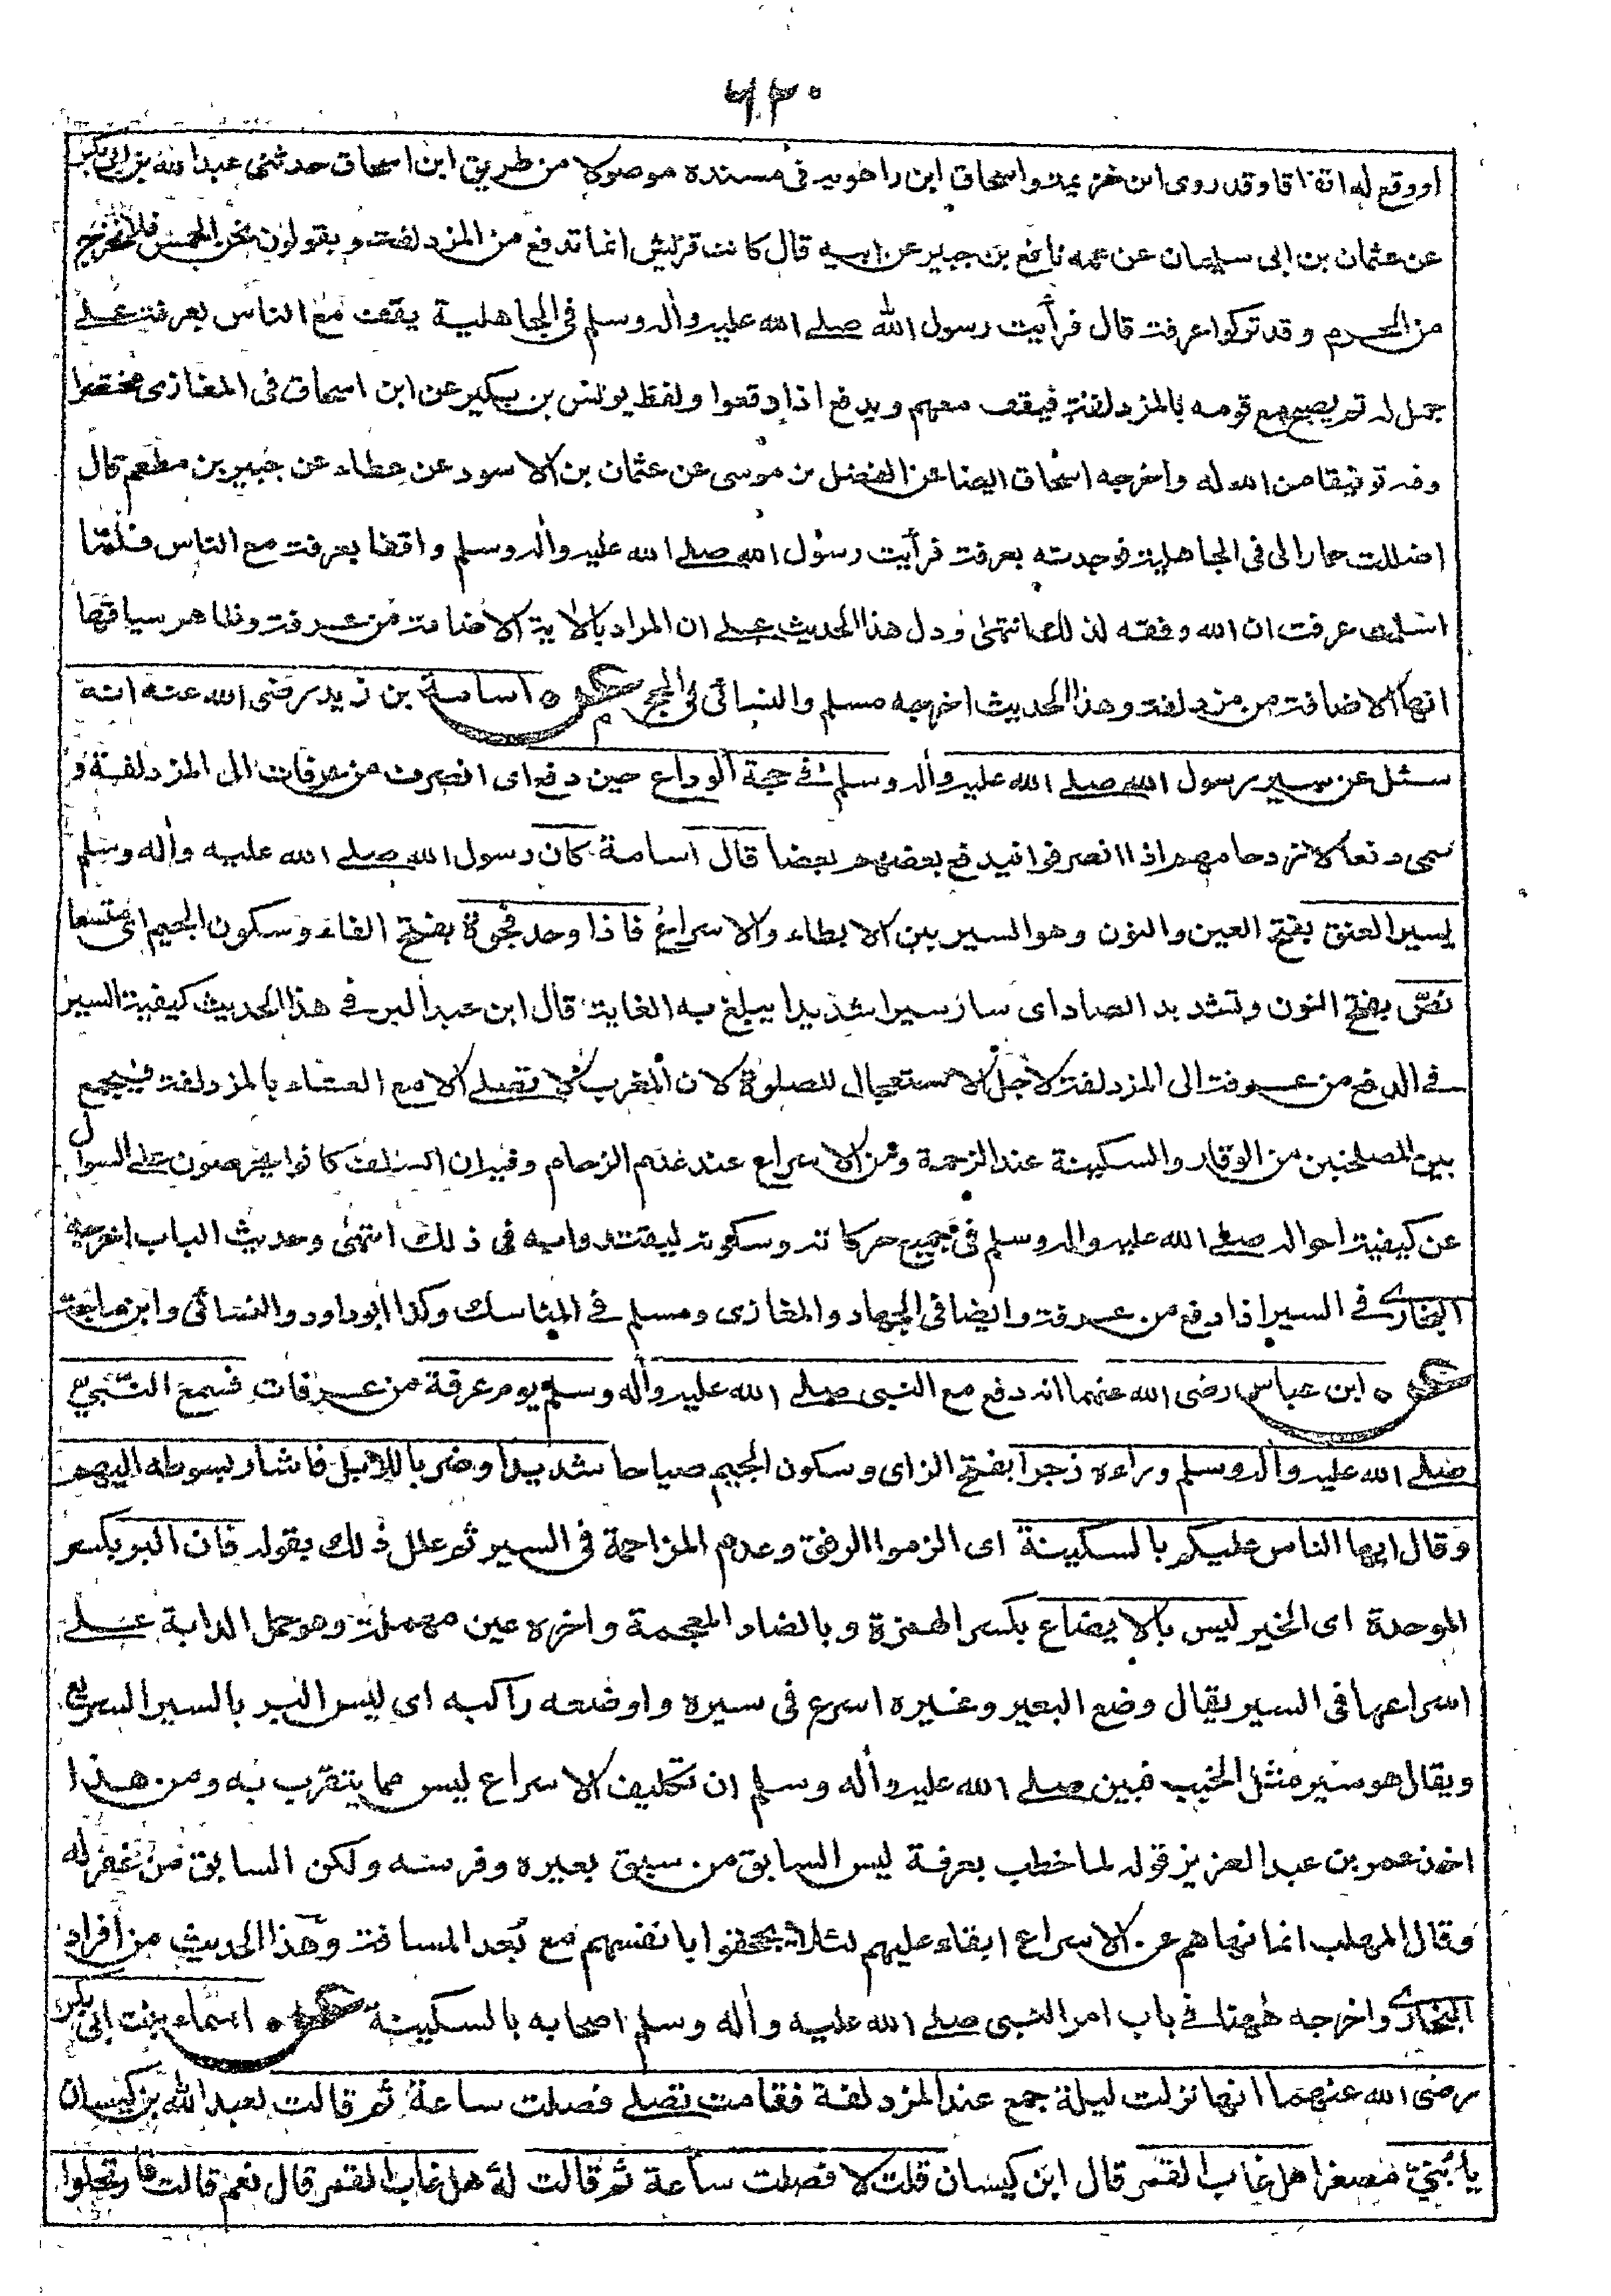 ٦٢٠
او وقع له اتفاقا وقد روى ابن خزيمة واسحاق ابن راهويه فى مسنده موصولا من طريق ابن اسحاق حدثنى عبد الله بن ابى بكر
عن عثمان بن ابى سليمان عن عمه نافع بن جبير عن ابيه قال كانت قريش انما تدفع من المزدلفة ويقولون نحن الحمس فلا نخرج
من الحرم وقد تركوا عرفة قال فرأيت رسول الله صلى الله عليه وأله وسلم فى الجاهلية يقف مع الناس بعرفة على
جمل له ثم يصبح مع قومه بالمزدلفة فيقف معهم ويدفع اذا دفعوا ولفظ يونس بن بكير عن ابن اسحاق فى المغازى مختصرا
وفيه توفيقا من الله له واخرجه اسحاق ايضا عن الفضل بن موسى عن عثمان بن الاسود عن عطاء عن جبير بن مطعم قال
اضللت حمارا لى فى الجاهلية فوجدته بعرفة فرأيت رسول الله صلى الله عليه وأله وسلم واقفا بعرفة مع الناس فلما
اسلمت عرفت ان الله وفقه لذلك انتهى ودل هذا الحديث على ان المراد بالاية الافاضة من عرفة وظاهر سياقها
انها الافاضة من مزدلفة وهذا الحديث اخرجه مسلم والنسائى فى الحج عن اسامة بن زيد رضى الله عنه انه
سئل عن سير رسول الله صلى الله عليه وأله وسلم فى حجة الوداع حين دفع اى انصرف من عرفات الى المزدلفة و
سمى دفعا لازدحامهم اذا انصرفوا فيدفع بعضهم بعضا قال اسامة كان رسول الله صلى الله عليه وأله وسلم
يسير العنق بفتح العين والنون وهو السير بين الابطاء والاسراع فاذا وجد فجوة بفتح الفاء وسكون الجيم اى متسعا
نصّ بفتح النون وتشديد الصاد اى سار سيرا شديدا يبلغ به الغاية قال ابن عبد البر فى هذا الحديث كيفية السير
فى الدفع من عرفة الى المزدلفة لاجل الاستعجال للصلوة لان المغرب لا تصلى الا مع العشاء بالمزدلفة فيجمع
بين المصلحتين من الوقار والسكينة عند الزحمة ومن الاسراع عند عدم الزحام وفيه ان السلف كانوا يحرصون على السوال
عن كيفية احواله صلى الله عليه وأله وسلم فى جميع حركاته وسكونه ليقتدوا به فى ذلك انتهى وحديث الباب اخرجه
البخارى فى السير اذا دفع من عرفة وايضا فى الجهاد والمغازى ومسلم فى المناسك وكذا ابو داود والنسائى وابن ماجة
عن ابن عباس رضى الله عنهما انه دفع مع النبى صلى الله عليه وأله وسلم يوم عرفة من عرفات فسمع النبى
صلى الله عليه وأله وسلم وراءه زجرا بفتح الزاى وسكون الجيم صياحا شديدا وضربا للابل فاشار بسوطه اليهم
وقال ايها الناس عليكم بالسكينة اى الزموا الرفق وعدم المزاحمة فى السير ثم علل ذلك بقوله فان البر بكسر
الموحدة اى الخير ليس بالايضاع بكسر الهمزة وبالضاد المعجمة واخره عين مهملة وهو حمل الدابة على
اسراعها فى السير يقال وضع البعير وغيره اسرع فى سيره واوضعه راكبه اى ليس البر بالسير السريع
ويقال هو سير مثل الخبب فبين صلى الله عليه وأله وسلم ان تكليف الاسراع ليس مما يتقرب به ومن هذا
اخذ عمر بن عبد العزيز قوله لما خطب بعرفة ليس السابق من سبق بعيره وفرسه ولكن السابق من غفر له
وقال المهلب انما نهاهم عن الاسراع ابقاء عليهم لئلا يجحفوا بانفسهم مع بُعد المسافة وهذا الحديث من أفراد
البخارى واخرجه ههنا فى باب امر النبى صلى الله عليه وأله وسلم اصحابه بالسكينة عن اسماء بنت ابى بكر
رضى الله عنهما انها نزلت ليلة جمع عند المزدلفة فقامت تصلى فصلت ساعة ثم قالت لعبد الله بن كيسان
يا بُنىّ مصغرا هل غاب القمر قال ابن كيسان قلت لا فصلت ساعة ثم قالت له هل غاب القمر قال نعم قالت فارتحلوا